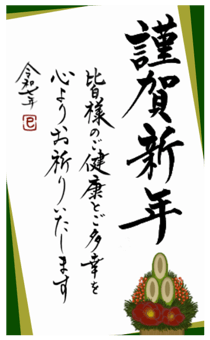 謹賀新年
皆様のご健康とご多幸を
心よりお祈りいたします
令和七年
巳